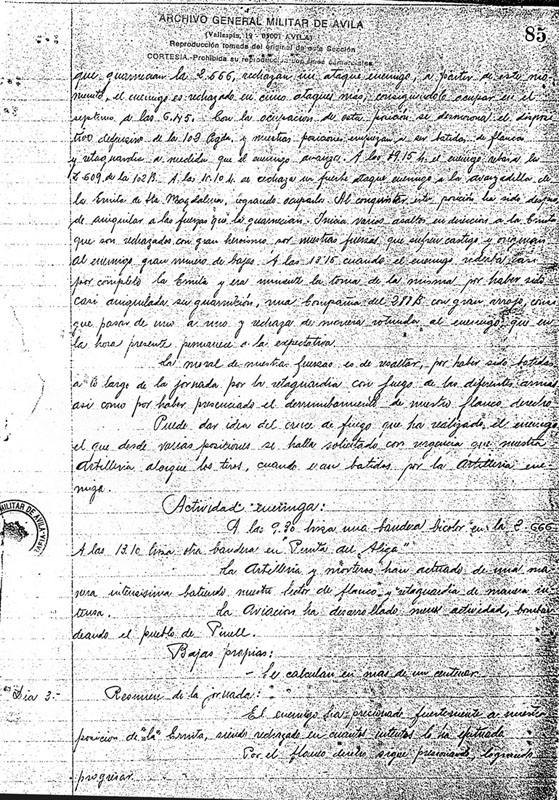 ARCHIVO GENERAL MILITAR DE AVILA
(Vallespin, 19 - 05001 AVILA)
Reproducción tomada del original de esta Sección
CORTESIA.-Prohibida su reproducción con fines comerciales
85
que guarnecian la 2.666, rechazan un ataque enemigo, a partir de este mo-
mento, el enemigo es rechazado en cinco ataques mas, consiguiendo ocupar en el
septimo a las 6.45. Con la ocupacion de esta posicion se desmorona el disposi-
tivo defensivo de la 103 Bgda. y nuestras posiciones empiezan a ser batidas de flanco
y retaguardia a medida que el enemigo avanza. A las 14.15 h. el enemigo la
609 de la 102 B. A las 15.10 h. se rechaza un fuerte ataque enemigo a la avanzadilla de
la Ermita de Sta Magdalena, logrando ocuparla. Al conquistar esta posición ha sido despues
de aniquilar a las fuerzas que la guarnecian. Inicia varios asaltos en direccion a la Ermita
que son rechazados con gran heroismo por nuestras fuerzas, que sufren castigo y originan
al enemigo gran numero de bajas. A las 18.15 cuando el enemigo rodeaba casi
por completo la Ermita y era inminente la toma de la misma por haber sido
casi aniquilada su guarnición, una Compañia del B con gran arrojo,
que pasan de uno a uno y rechaza de manera rotunda al enemigo que en
la hora presente permanece a la expectativa.
La moral de nuestras fuerzas es de resaltar, por haber sido batidas
a lo largo de la jornada por la retaguardia con fuego de las diferentes armas
asi como por haber presenciado el derrumbamiento de nuestro flanco derecho.
Puede dar idea del cruce de fuego que ha realizado el enemigo,
el que desde varias posiciones se halla solicitado con urgencia que nuestra
Artilleria alargue los tiros, cuando eran batidos por la Artilleria ene-
miga.
Actividad enemiga:
A las 9.30 una bandera bicolor en la 666
A las 13.10 otra bandera en "Punta del Aliga"
La Artilleria y morteros han actuado de una ma-
nera intensisima batiendo nuestro sector de flanco y retaguardia de manera in-
tensa. La Aviacion ha desarrollado menos actividad, bombar-
deando el pueblo de Pinell.
Bajas propias:
- Se calculan en mas de un centenar.
Dia 3.- Resumen de la jornada:
El enemigo ha presionado fuertemente a nuestra
posicion de "la" Ermita, siendo rechazado en cuantos intentos lo ha efectuado
Por el flanco derecho sigue presionando, logrando
progresar.
MILITAR DE AVILA